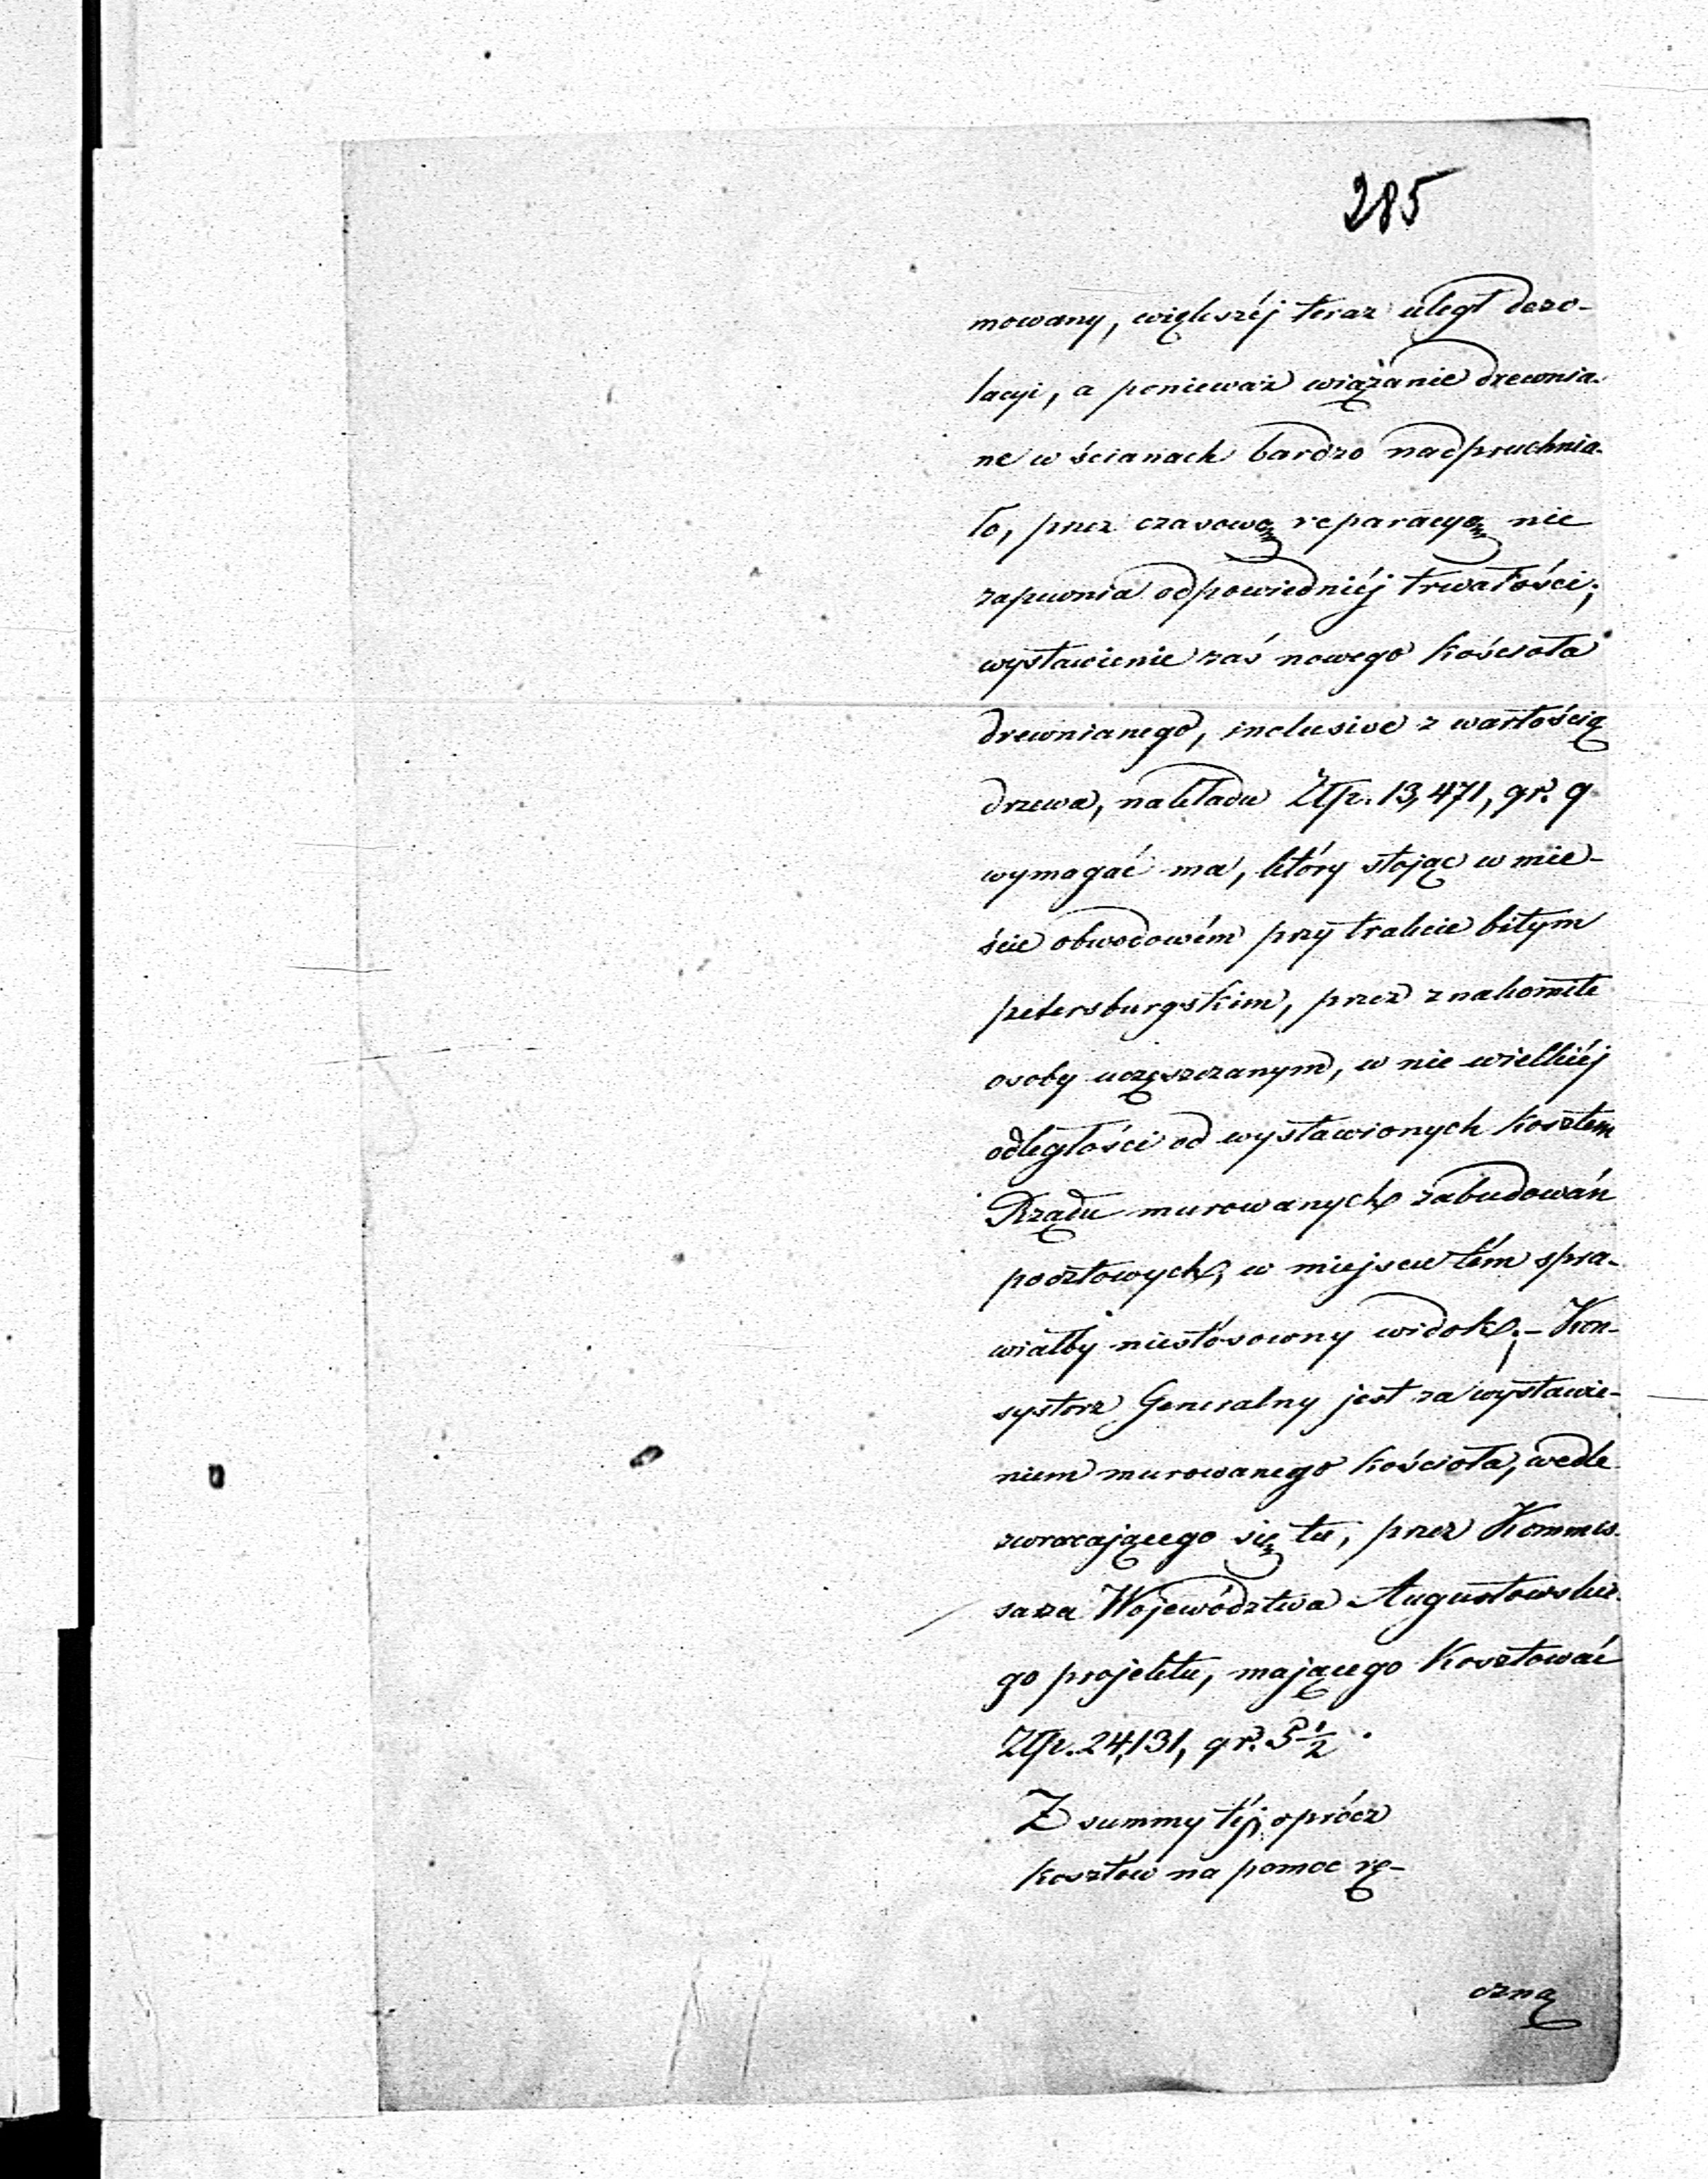 285
mowany, większéj teraz uległ dezo-
lacyi, a ponieważ wiązanie drewnia-
ne w ścianach bardzo nadpruchnia-
ło, przez czasową reparacyą nie
zapewnia odpowiedniéj trwałości;
wystawienie zaś nowego kościoła
drewnianego, inclusive z wartością
drzewa, nakładu Złp. 13,471, gr. 9
wymagać ma, który stojąc w mie-
ście obwodowém przy trakcie bitym
petersburgskim, przez znakomite
osoby uczęszczanym, w nie wielkiéj
odległości od wystawionych kosztem
Rządu murowanych zabudowań
pocztowych, w miejscu tém spra-
wiałby niestósowny widok; - Kon-
systorz Generalny jest za wystawie-
niem murowanego kościoła, wedle
zwracającego się tu, przez Kommis-
sarza Województwa Augustowskie-
go projektu, mającego kosztować
Złp. 24,131, gr. 5 1/2.
Z summy téj, oprócz
kosztów na pomoc rę-
czną